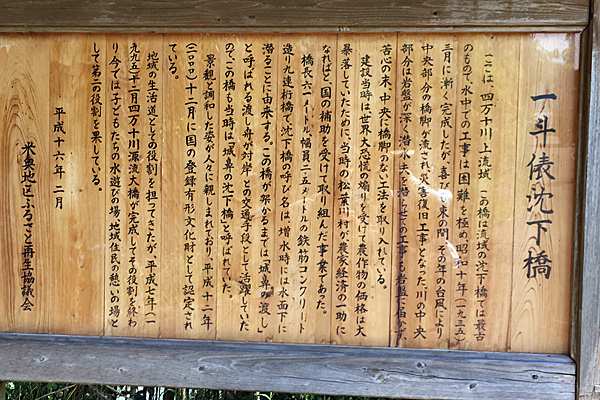 一斗俵沈下橋
ここは、四万十川上流域 この橋は流域の沈下橋では最古
のもので、水中での工事は困難を極め昭和十年(一九三五)
三月に漸く完成したが、喜びも束の間、その年の台風により
中央部分の橋脚が流され災害復旧工事となった。川の中央
部分は岩盤が深く、潜水夫を潜らせての工事も岩盤に届かず、
苦心の末、中央に橋脚のない工法を取り入れている。
建設当時は世界大恐慌の煽りを受けて農作物の価格は大
暴落していたために、当時の松葉川村が農家経済の一助に
なればと、国の補助を受けて取り組んだ事業であった。
橋長六一メートル、幅員二・五メートルの鉄筋コンクリート
造り九連桁橋で、沈下橋の呼び名は、増水時には水面下に
潜ることに由来する。この橋が架かるまでは「城鼻の渡し」
と呼ばれる渡し舟が対岸との交通手段として活躍していた
ので、この橋も当時は「城鼻の沈下橋」と呼ばれていた。
景観と調和した姿が人々に親しまれており、平成十二年
(二〇〇〇)十二月に国の登録有形文化財として認定され
ている。
地域の生活道としての役割を担ってきたが、平成七年(一
九九五)十二月四万十川源流大橋が完成してその役割を終わ
り、今では子どもたちの水遊びの場、地域住民の憩いの場と
して第二の役割を果している。
平成十六年二月
米奥地区ふるさと再生協議会